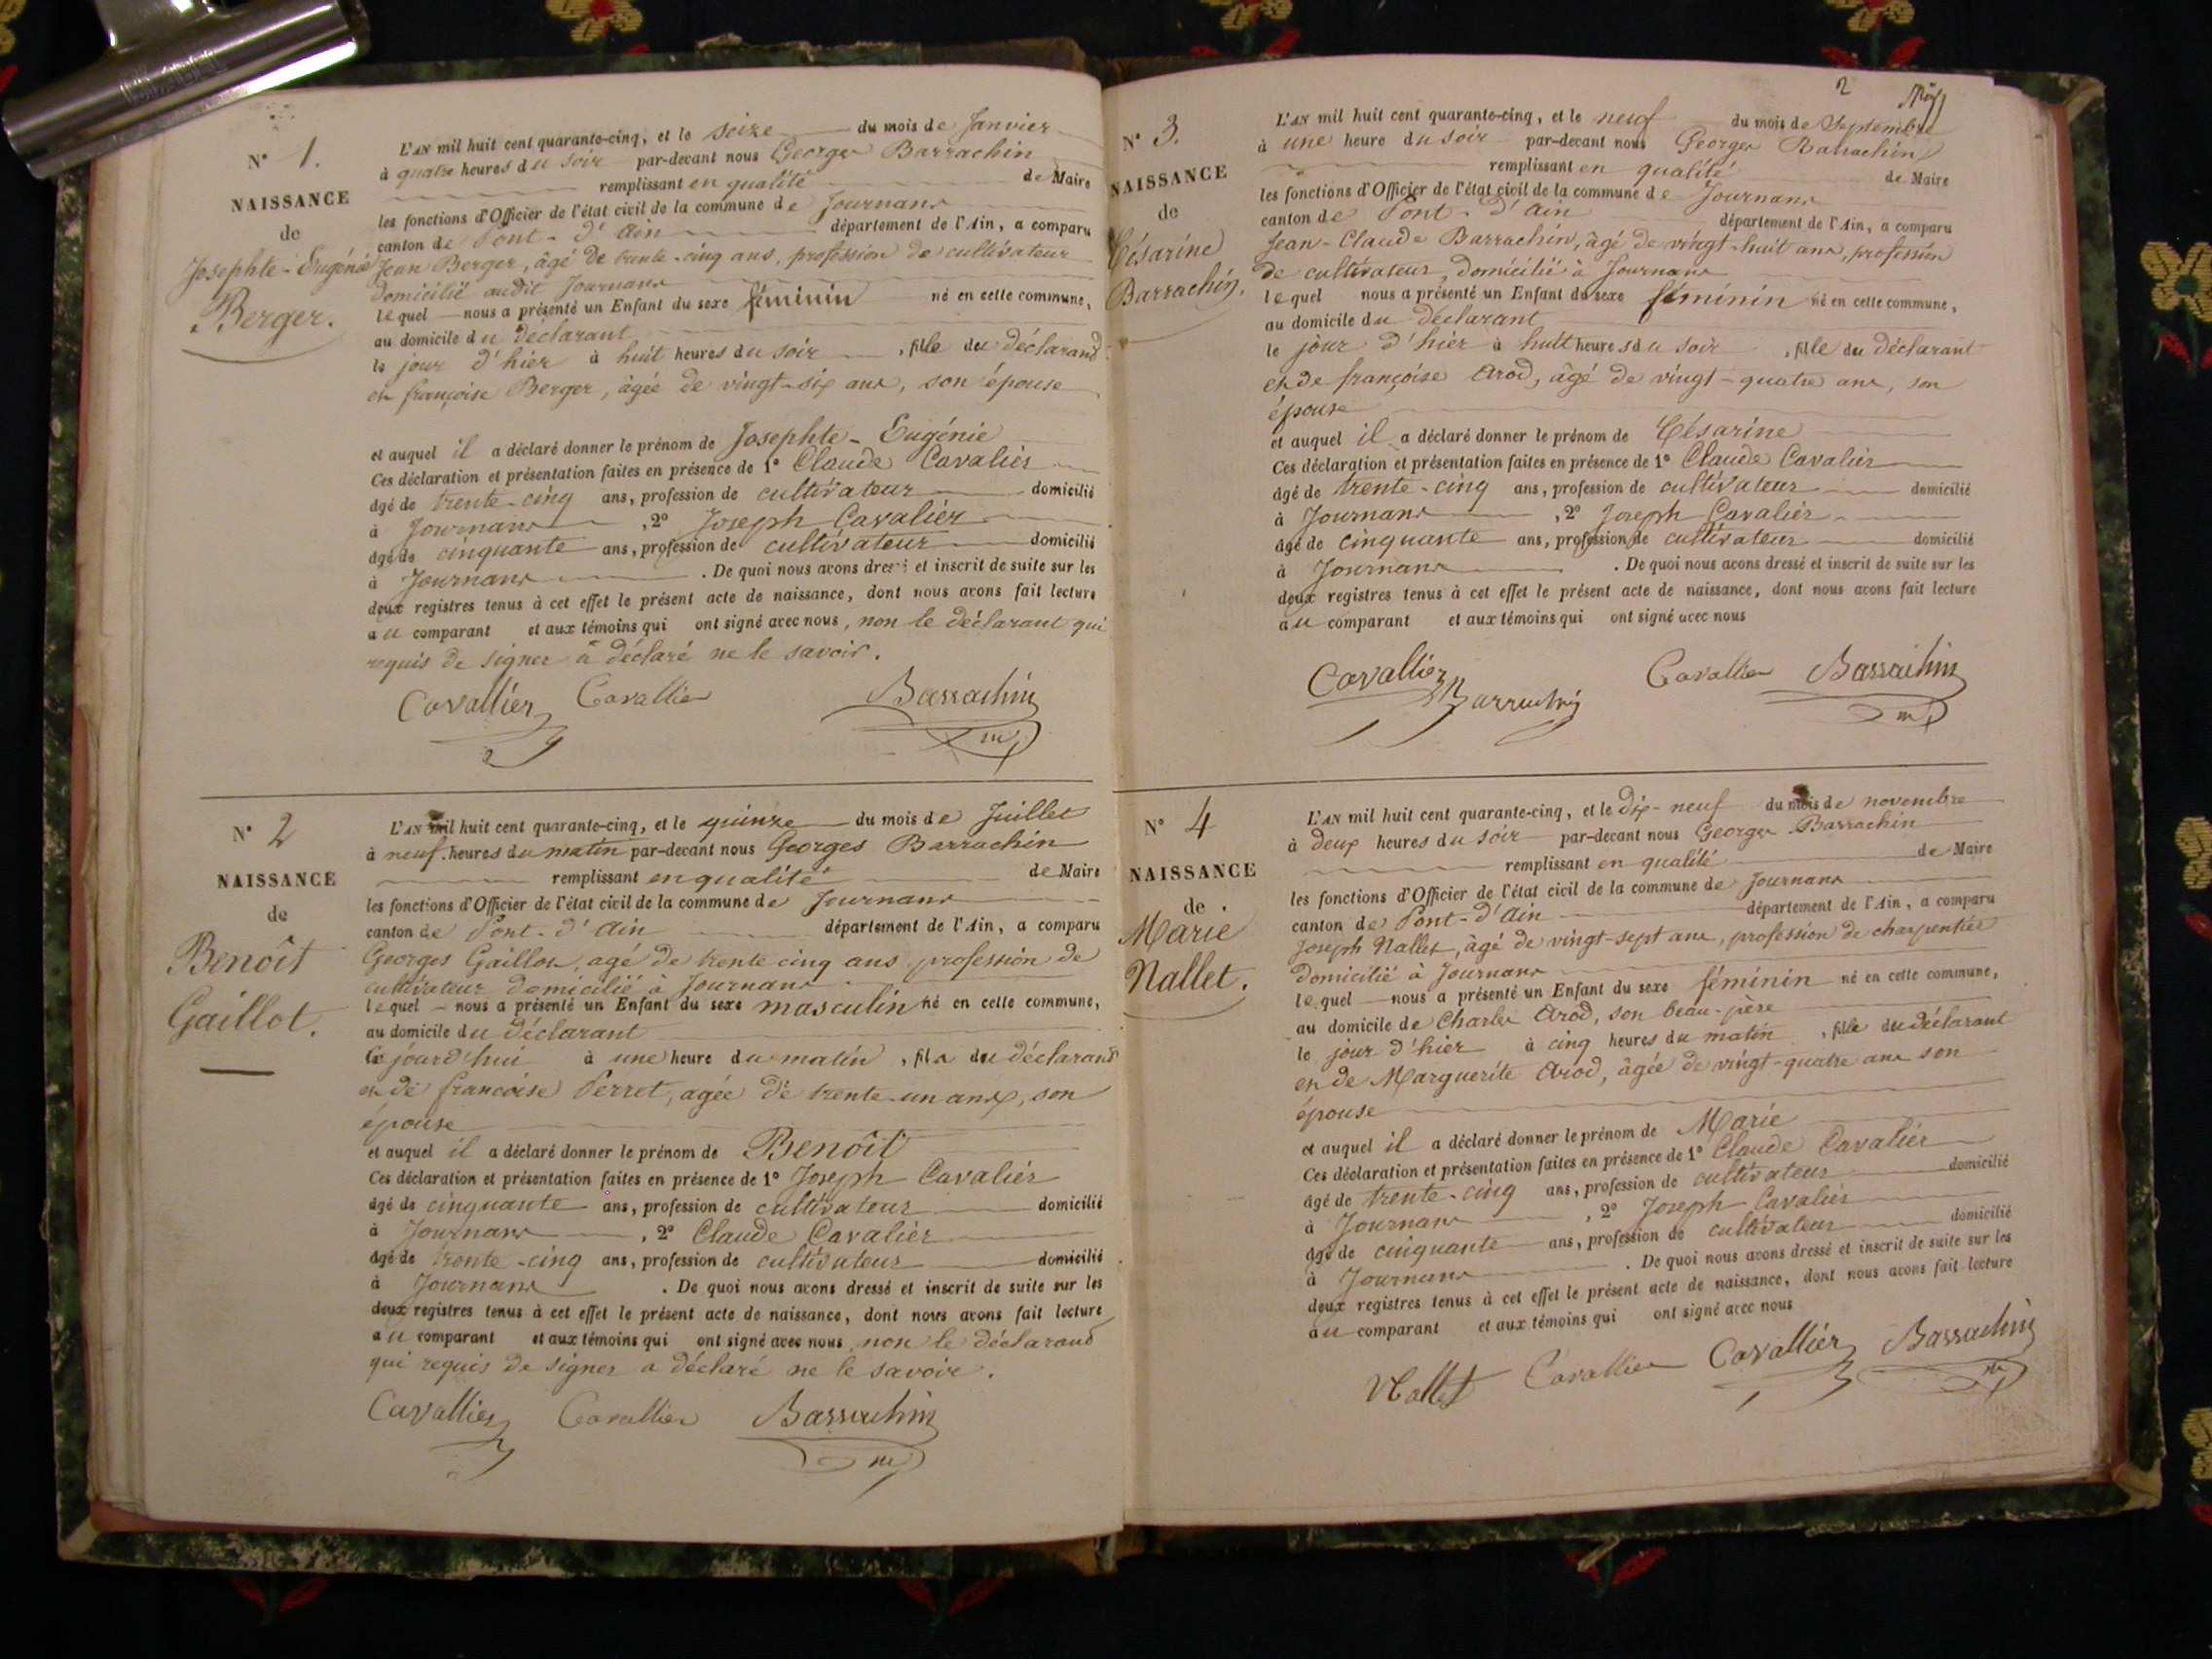 N° 1.
NAISSANCE
de
Josephte-Eugénie
Berger.
L'AN mil huit cent quarante-cinq, et le seize du mois de Janvier
à quatre heures du soir par-devant nous Georges Barrachin
remplissant en qualité de Maire
les fonctions d'Officier de l'état civil de la commune de Journans
canton de Pont-d'Ain département de l'Ain, a comparu
Jean Berger, âgé de trente-cinq ans, profession de cultivateur
domicilié audit Journans
lequel nous a présenté un Enfant du sexe féminin né en cette commune,
au domicile du déclarant
le jour d'hier à huit heures du soir, fille du déclarant
et françoise Berger, âgée de vingt-six ans, son épouse
et auquel il a déclaré donner le prénom de Josephte-Eugénie
Ces déclaration et présentation faites en présence de 1° Claude Cavalier
âgé de trente-cinq ans, profession de cultivateur domicilié
à Journans, 2° Joseph Cavalier
âgé de cinquante ans, profession de cultivateur domicilié
à Journans. De quoi nous avons dressé et inscrit de suite sur les
deux registres tenus à cet effet le présent acte de naissance, dont nous avons fait lecture
au comparant et aux témoins qui ont signé avec nous, non le déclarant qui
requis de signer a déclaré ne le savoir.
Cavallier Cavallier Barrachin
m
N° 2
NAISSANCE
de
Benoît
Gaillot.
L'AN mil huit cent quarante-cinq, et le quinze du mois de Juillet
à neuf heures du matin par-devant nous Georges Barrachin
remplissant en qualité de Maire
les fonctions d'Officier de l'état civil de la commune de Journans
canton de Pont-d'Ain département de l'Ain, a comparu
Georges Gaillot, agé de trente cinq ans profession de
cultivateur domicilié à Journans
lequel nous a présenté un Enfant du sexe masculin né en cette commune,
au domicile du déclarant
ce jourd'hui à une heure du matin, fils du déclarant
et de francoise Perret, agée de trente-un ans, son
épouse
et auquel il a déclaré donner le prénom de Benoît
Ces déclaration et présentation faites en présence de 1° Joseph Cavalier
âgé de cinquante ans, profession de cultivateur domicilié
à Journans, 2° Claude Cavalier
âgé de trente-cinq ans, profession de cultivateur domicilié
à Journans. De quoi nous avons dressé et inscrit de suite sur les
deux registres tenus à cet effet le présent acte de naissance, dont nous avons fait lecture
au comparant et aux témoins qui ont signé avec nous, non le déclarant
qui requis de signer a déclaré ne le savoir.
Cavallier Cavallier Barrachin
m
2
N° 3.
NAISSANCE
de
Césarine
Barrachin.
L'AN mil huit cent quarante-cinq, et le neuf du mois de Septembre
à une heure du soir par-devant nous Georges Barrachin
remplissant en qualité de Maire
les fonctions d'Officier de l'état civil de la commune de Journans
canton de Pont-d'Ain département de l'Ain, a comparu
Jean-Claude Barrachin, âgé de vingt-huit ans, profession
de cultivateur, domicilié à Journans
lequel nous a présenté un Enfant du sexe féminin né en cette commune,
au domicile du déclarant
le jour d'hier à huit heures du soir, fille du déclarant
et de françoise Arod, âgé de vingt-quatre ans, son
épouse
et auquel il a déclaré donner le prénom de Césarine
Ces déclaration et présentation faites en présence de 1° Claude Cavalier
âgé de trente-cinq ans, profession de cultivateur domicilié
à Journans, 2° Joseph Cavalier
âgé de cinquante ans, profession de cultivateur domicilié
à Journans. De quoi nous avons dressé et inscrit de suite sur les
deux registres tenus à cet effet le présent acte de naissance, dont nous avons fait lecture
au comparant et aux témoins qui ont signé avec nous
Cavallier Barrachin Cavallier Barrachin
m
N° 4
NAISSANCE
de
Marie
Nallet.
L'AN mil huit cent quarante-cinq, et le dix-neuf du mois de novembre
à deux heures du soir par-devant nous Georges Barrachin
remplissant en qualité de Maire
les fonctions d'Officier de l'état civil de la commune de Journans
canton de Pont-d'Ain département de l'Ain, a comparu
Joseph Nallet, âgé de vingt-sept ans, profession de charpentier
domicilié à Journans
lequel nous a présenté un Enfant du sexe féminin né en cette commune,
au domicile de Charles Arod, son beau-père
le jour d'hier à cinq heures du matin, fille du déclarant
et de Marguerite Arod, âgée de vingt-quatre ans son
épouse
et auquel il a déclaré donner le prénom de Marie
Ces déclaration et présentation faites en présence de 1° Claude Cavalier
âgé de trente-cinq ans, profession de cultivateur domicilié
à Journans, 2° Joseph Cavalier
âgé de cinquante ans, profession de cultivateur domicilié
à Journans. De quoi nous avons dressé et inscrit de suite sur les
deux registres tenus à cet effet le présent acte de naissance, dont nous avons fait lecture
au comparant et aux témoins qui ont signé avec nous
Nallet Cavallier Cavallier Barrachin
m